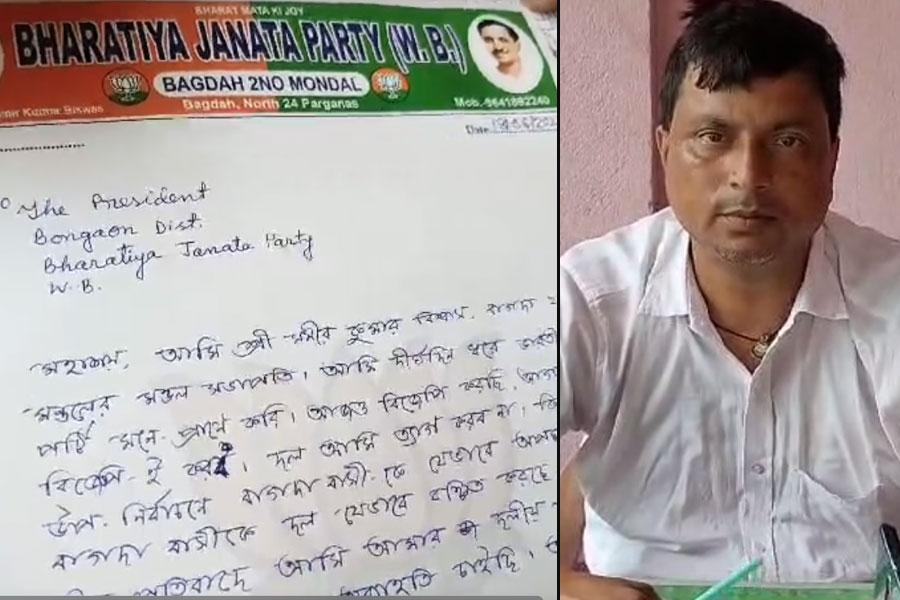 BHARAT MATA KI JOY
BHARATIYA JANATA PARTY (W. B.)
BAGDAH 2NO MONDAL
Kumar Biswas
Bagdah, North 24 Parganas
Mob.-9641892240
Date
The President
Bongaon Dist.
Bharatiya Janata Party
W. B.
মহাশয়, আমি শ্রী সমীর কুমার বিশ্বাস, বাগদা
মন্ডলের মন্ডল সভাপতি। আমি দীর্ঘদিন ধরে
পার্টি মনে-প্রাণে করি। আজও বিজেপি করছি,
বিজেপি-ই করব। দল আমি ত্যাগ করব না।
উপ-নির্বাচনে বাগদা বাসী-কে যেভাবে
বাগদা বাসীকে দল যেভাবে বঞ্চিত করছে
প্রতিবাদে আমি আমার দলীয়
অব্যাহতি চাইছি।